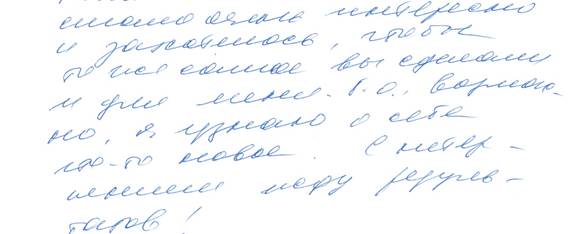 стало очень интересно
и захотелось, чтобы
то же самое вы сделали
и для меня. Т.о., возмож-
но, я узнаю о себе
что-то новое. С нетер-
пением жду результ-
татов!